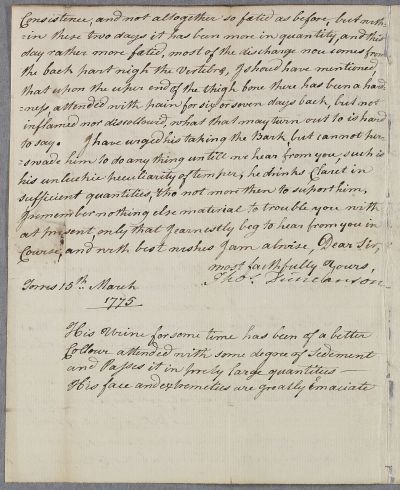 Consistence, and not altogether so fœtid as before, but with-
-in these two days it has been more in quantity, and this
day rather more fœtid, most of the discharge now comes from
the back part nigh the Vertebra, I should have mentioned
that upon the uper end of the thigh bone there has been a hard-
-ness, attended with pain for six or seven days back, but not
inflamed nor discollour'd, what that may turn out to is hard
to say. I have urged his taking the Bark, but cannot per-
-swade him to do any thing untill we hear from you, such is
his unluckie peculiarity of temper, he drinks Claret in
sufficient quantities, tho not more then to suport him,
I remember nothing else material to trouble you with
at present, only that I earnestly beg to hear from you in
Course, and with best wishes I am alwise, Dear Sir,
most faithfully Yours,
Tho.s Duncanson
Torres 15th March
1775
His Urine for some time has been of a better
Collour attended with some degree of Sedement
and Passes it in prety large quantitys —
His face and extremeties are greatly Emaciate